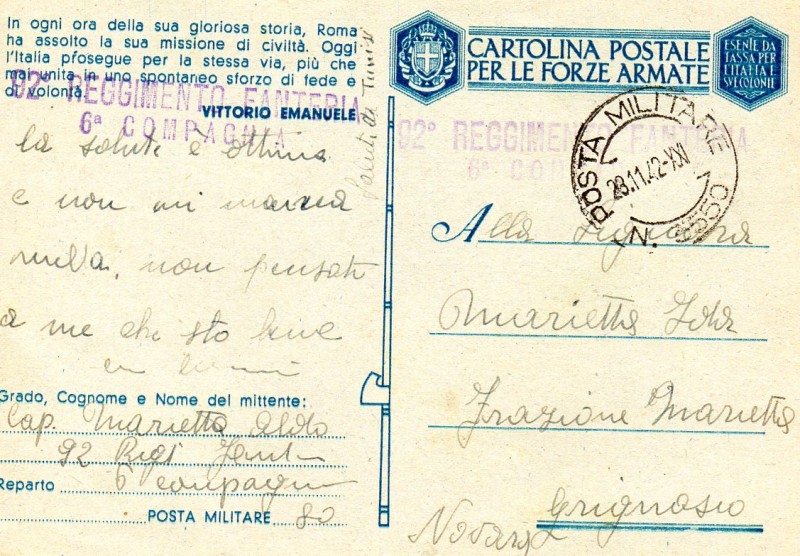 In ogni ora della sua gloriosa storia, Roma
ha assolto la sua missione di civiltà. Oggi
l'Italia prosegue per la stessa via, più che
mai unita in uno spontaneo sforzo di fede e
di volontà.
VITTORIO EMANUELE
92° REGGIMENTO FANTERIA
6ª COMPAGNIA
Saluti da Tunisi
la salute è ottima
e non mi manca
nulla, non pensate
a me che sto bene
Grado, Cognome e Nome del mittente:
Cap. Marietta Aldo
92 Regt Fant
Reparto 6 compagnia
POSTA MILITARE 80
CARTOLINA POSTALE
PER LE FORZE ARMATE
ESENTE DA
TASSA PER
L'ITALIA E
SUE COLONIE
92° REGGIMENTO FANTERIA
6ª COMP
POSTA MILITARE
28.11.42-XXI
N. 3550
Alla Signora
Marietta
Frazione Marietta
Grignasco
Novara